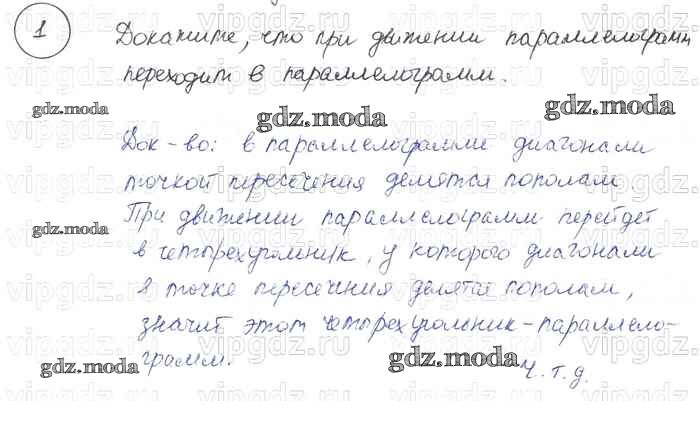 1 Докажите, что при движении параллелограмм
переходит в параллелограмм.
Док-во: в параллелограмме диагонали
точкой пересечения делятся пополам
При движении параллелограмм перейдет
в четырехугольник, у которого диагонали
в точке пересечения делятся пополам,
значит этот четырехугольник-параллело-
грамм.
ч.т.д.
gdz.moda
gdz.moda
gdz.moda
gdz.moda
gdz.moda
gdz.moda
vipgdz.ru